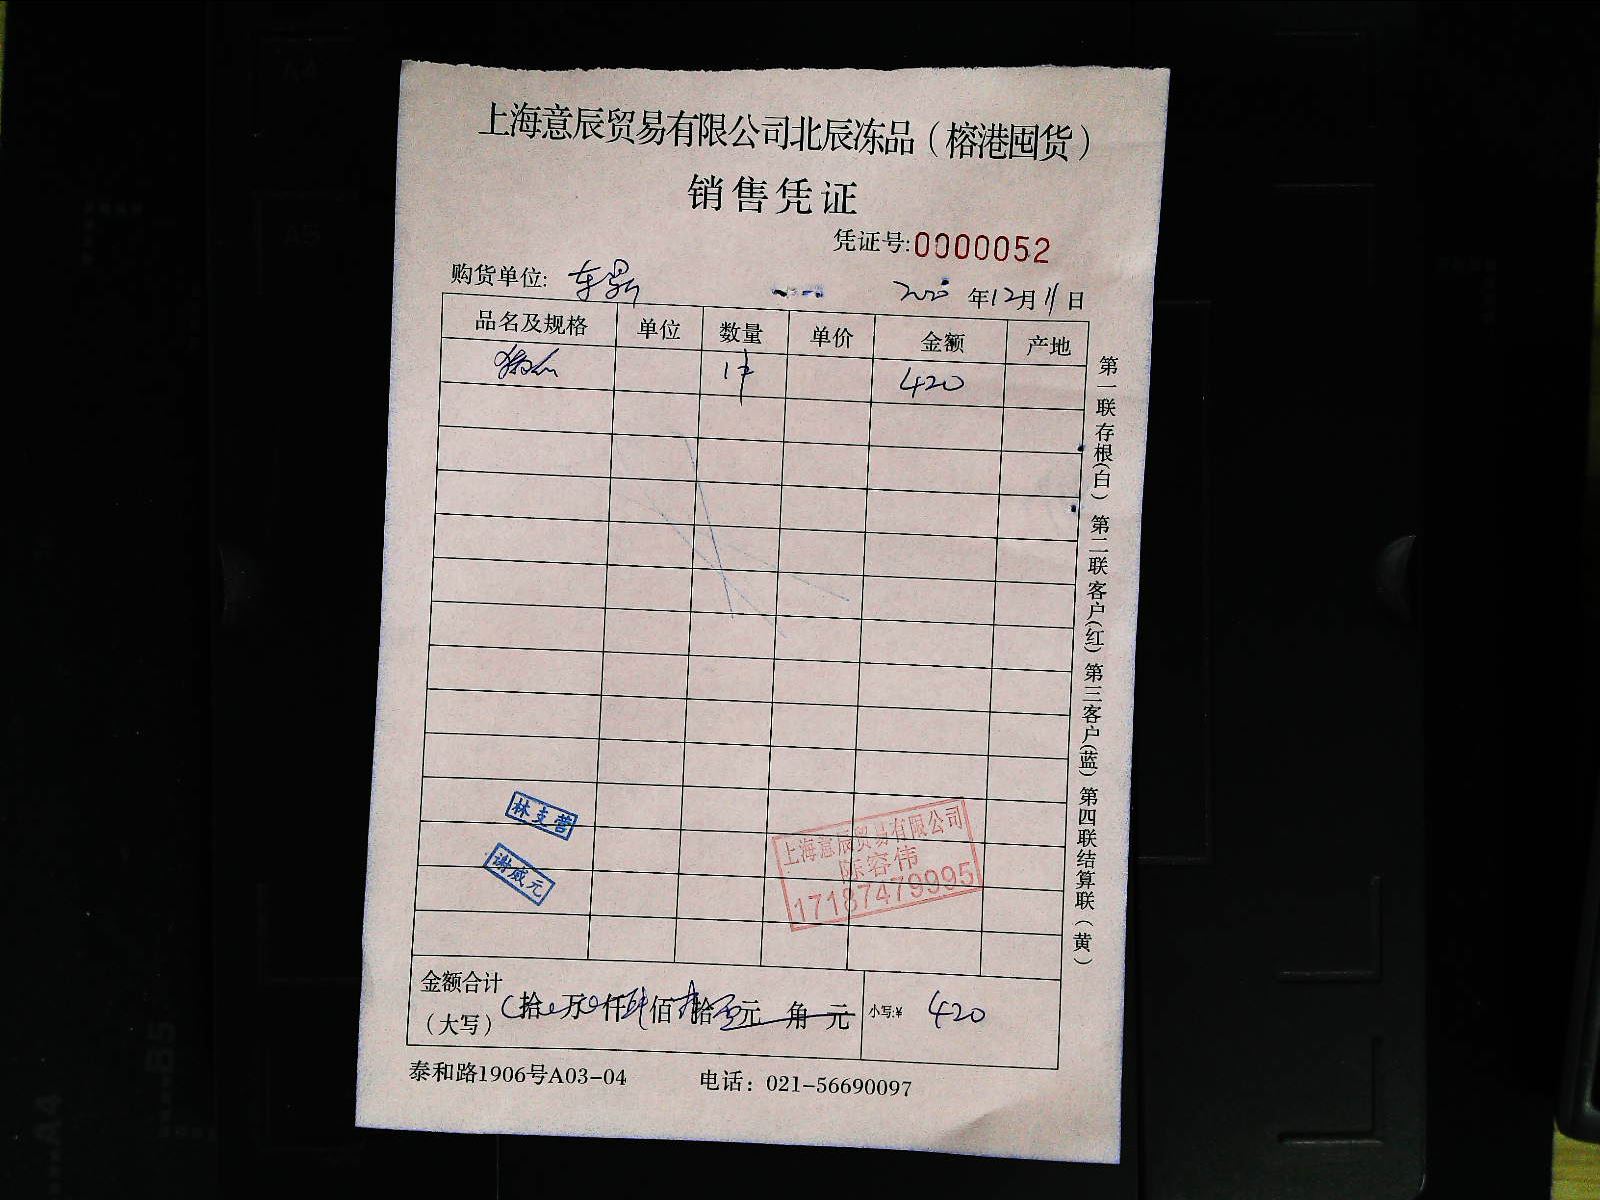 上海意辰贸易有限公司北辰冻品（榕港囤货）
销售凭证
凭证号:0000052
购货单位:
年12月11日
品名及规格 单位 数量 单价 金额 产地
1件 420
林支营
谢威元
上海意辰贸易有限公司
陈容伟
17187479995
金额合计
（大写） 拾 万 仟 肆佰 拾 元 角 元 小写:¥ 420
泰和路1906号A03-04 电话：021-56690097
第一联存根(白) 第二联客户(红) 第三客户(蓝) 第四联结算联(黄)
A4
A5
B5
A4